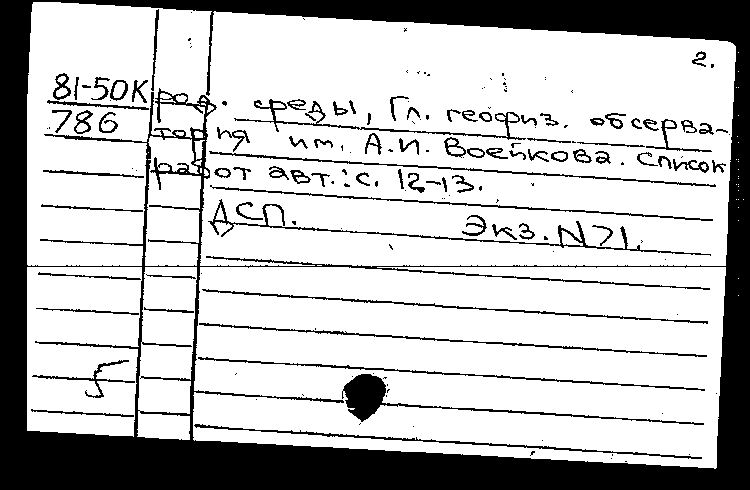 2.
81-50К род. среды, Гл. геофиз. обсерва-
786 тория им. А.И. Воейкова. Список
работ авт.: с. 12-13.
ДСП. Экз. N71.
5